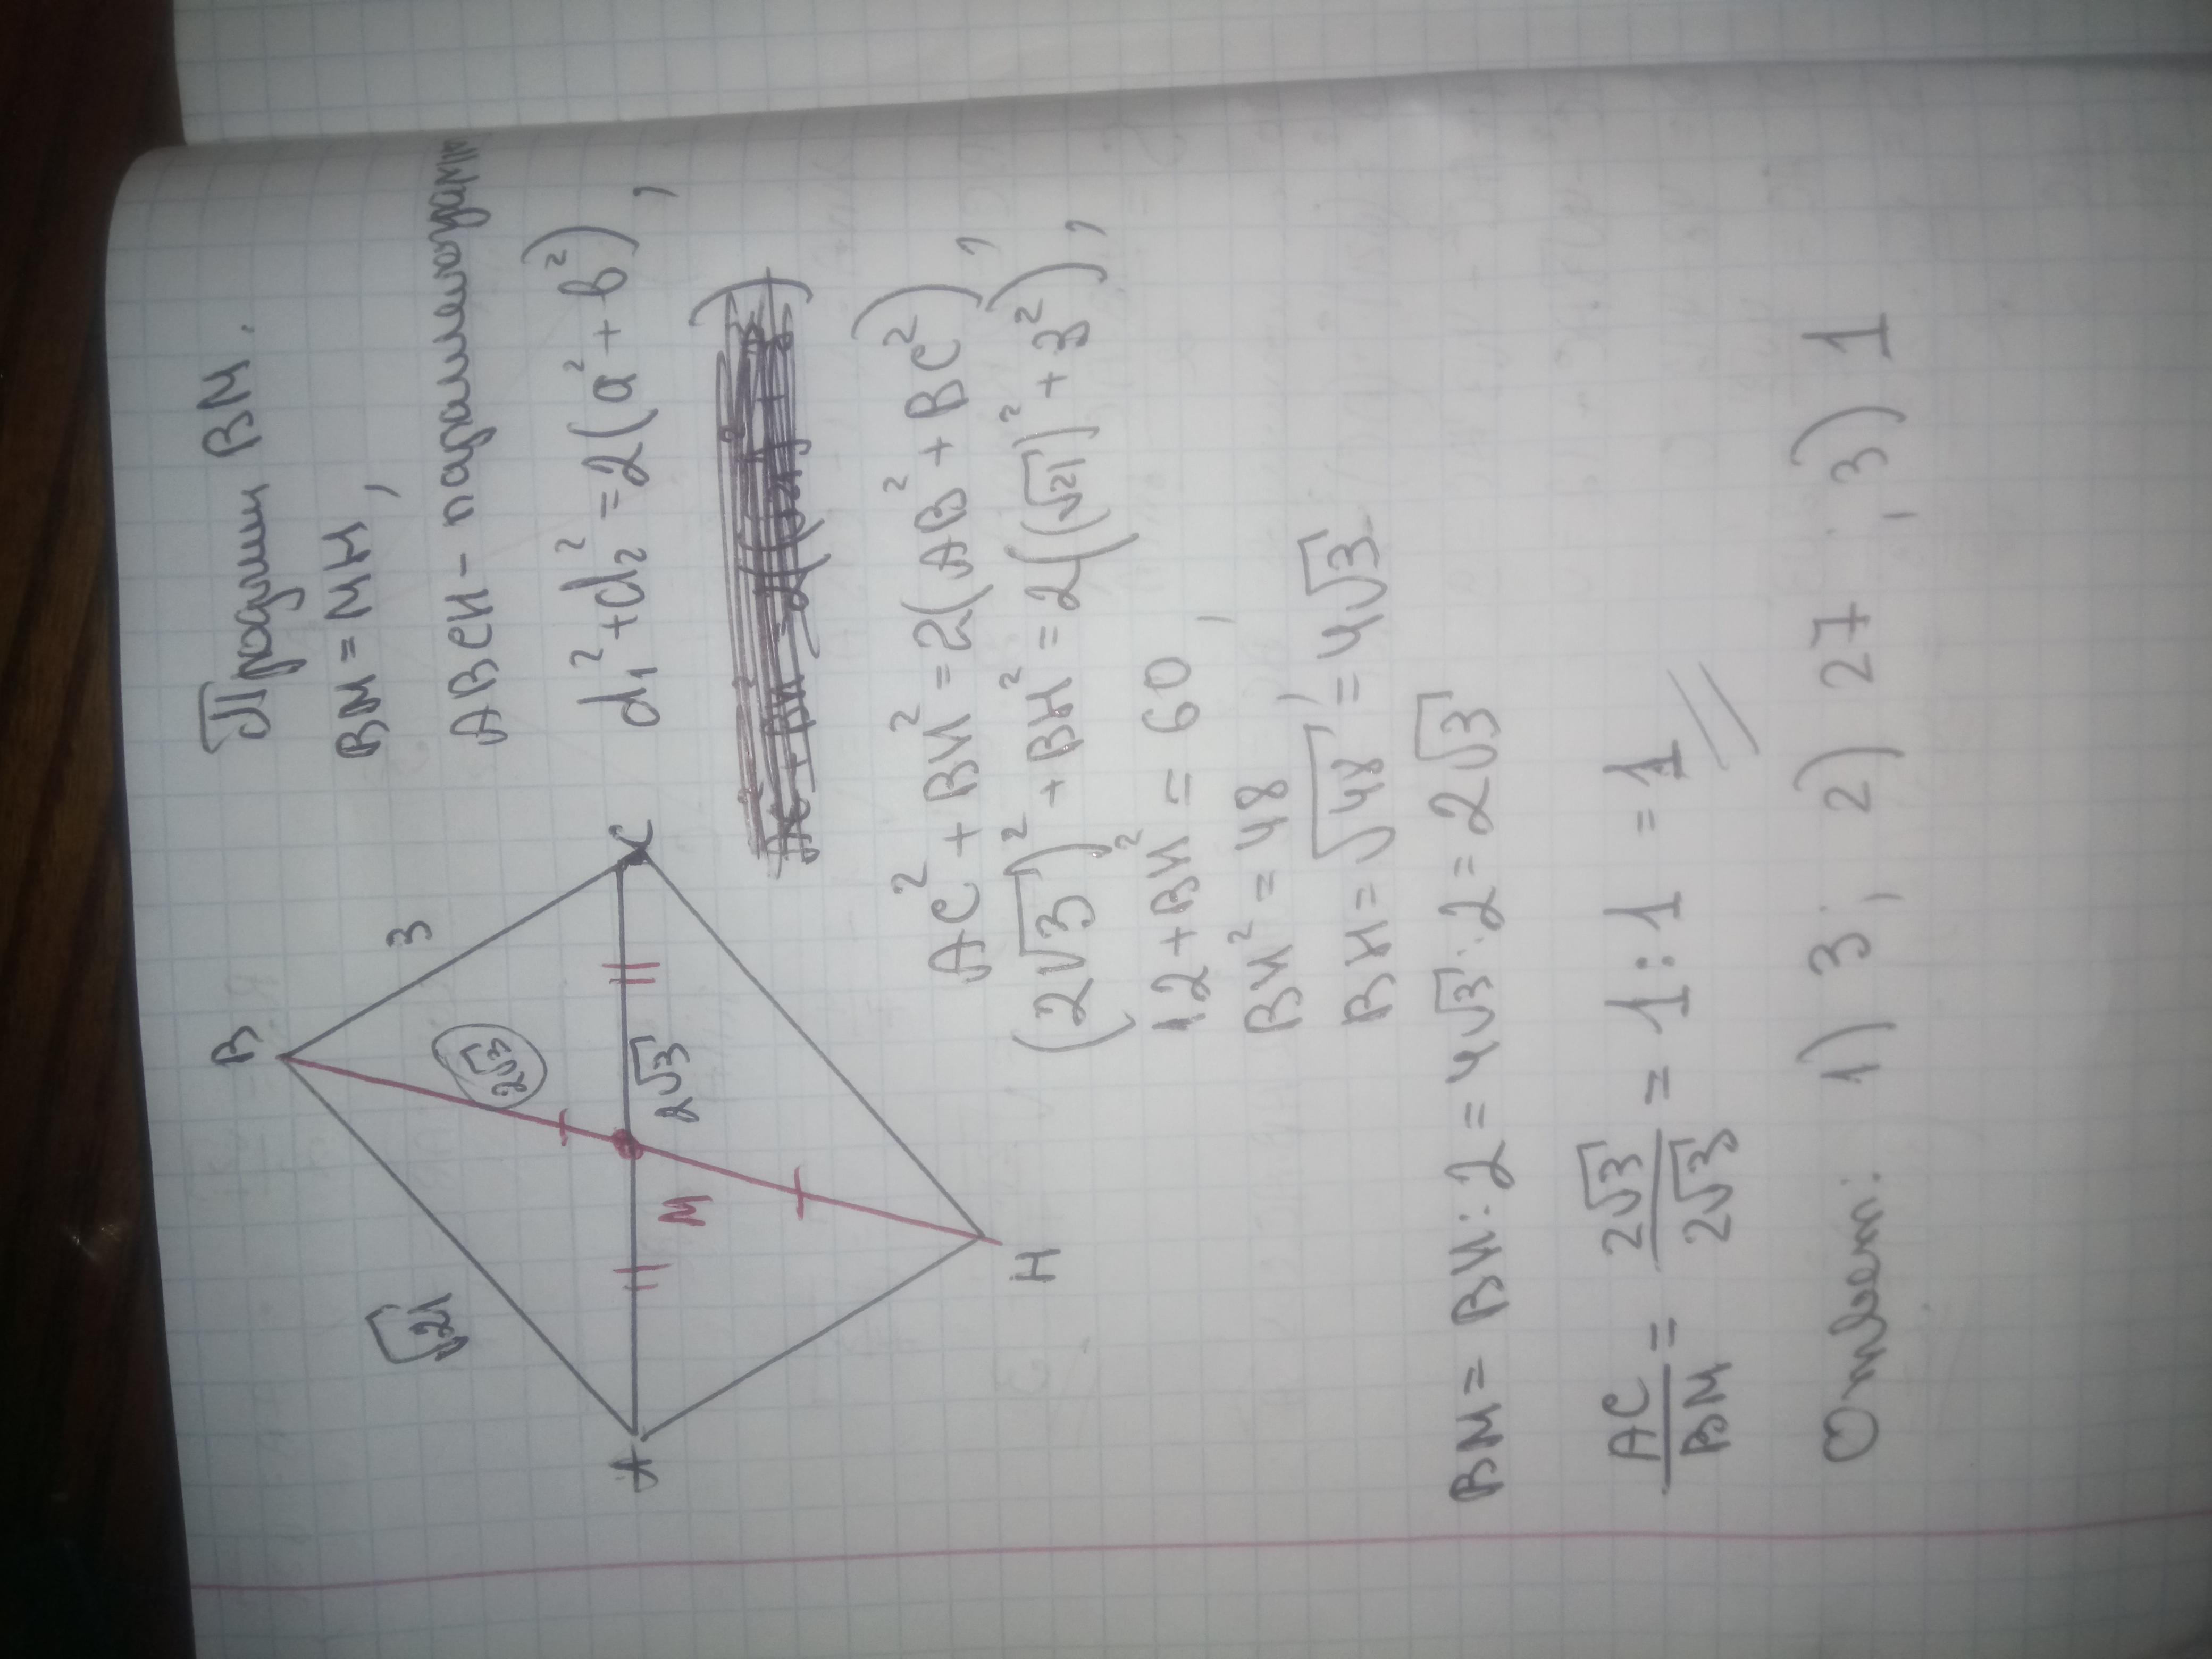 B
√21
3
2√3
A
M
2√3
C
H
BM.
BM = MH,
ABCH - параллелограмм
d₁² + d₂² = 2(a² + b²),
AC² + BH² = 2(AB² + BC²),
(2√3)² + BH² = 2((√21)² + 3²),
12 + BH² = 60,
BH² = 48
BH = √48, = 4√3
BM = BH : 2 = 4√3 : 2 = 2√3
AC/BM = 2√3/2√3 = 1 : 1 = 1
Ответ: 1) 3; 2) 27 ; 3) 1